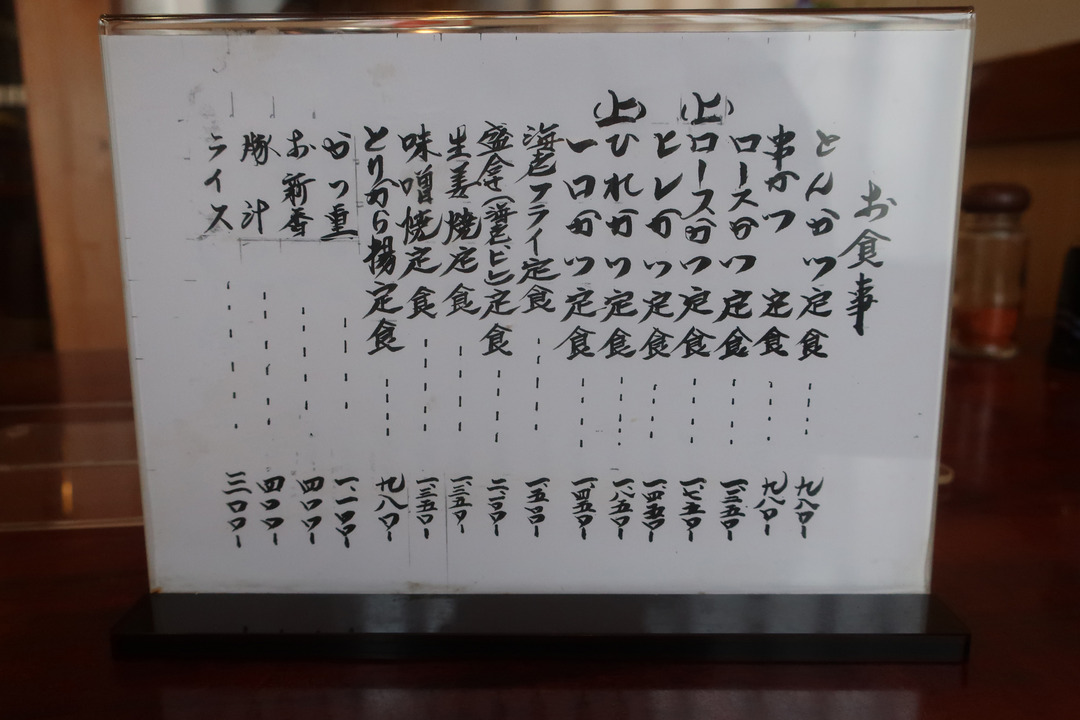 お食事
とんかつ定食 九八〇ー
串かつ定食 九八〇ー
ロースかつ定食 一、三五〇ー
(上)ロースかつ定食 一、七五〇ー
ヒレかつ定食 一、四五〇ー
(上)ひれかつ定食 一、八五〇ー
一口かつ定食 一、四五〇ー
海老フライ定食 一、五〇〇ー
盛合せ(海老、ヒレ)定食 二、〇〇〇ー
生姜焼定食 一、三五〇ー
味噌焼定食 一、三五〇ー
とりから揚定食 九八〇ー
かつ重 一、一〇〇ー
お新香 四〇〇ー
豚汁 四〇〇ー
ライス 三〇〇ー